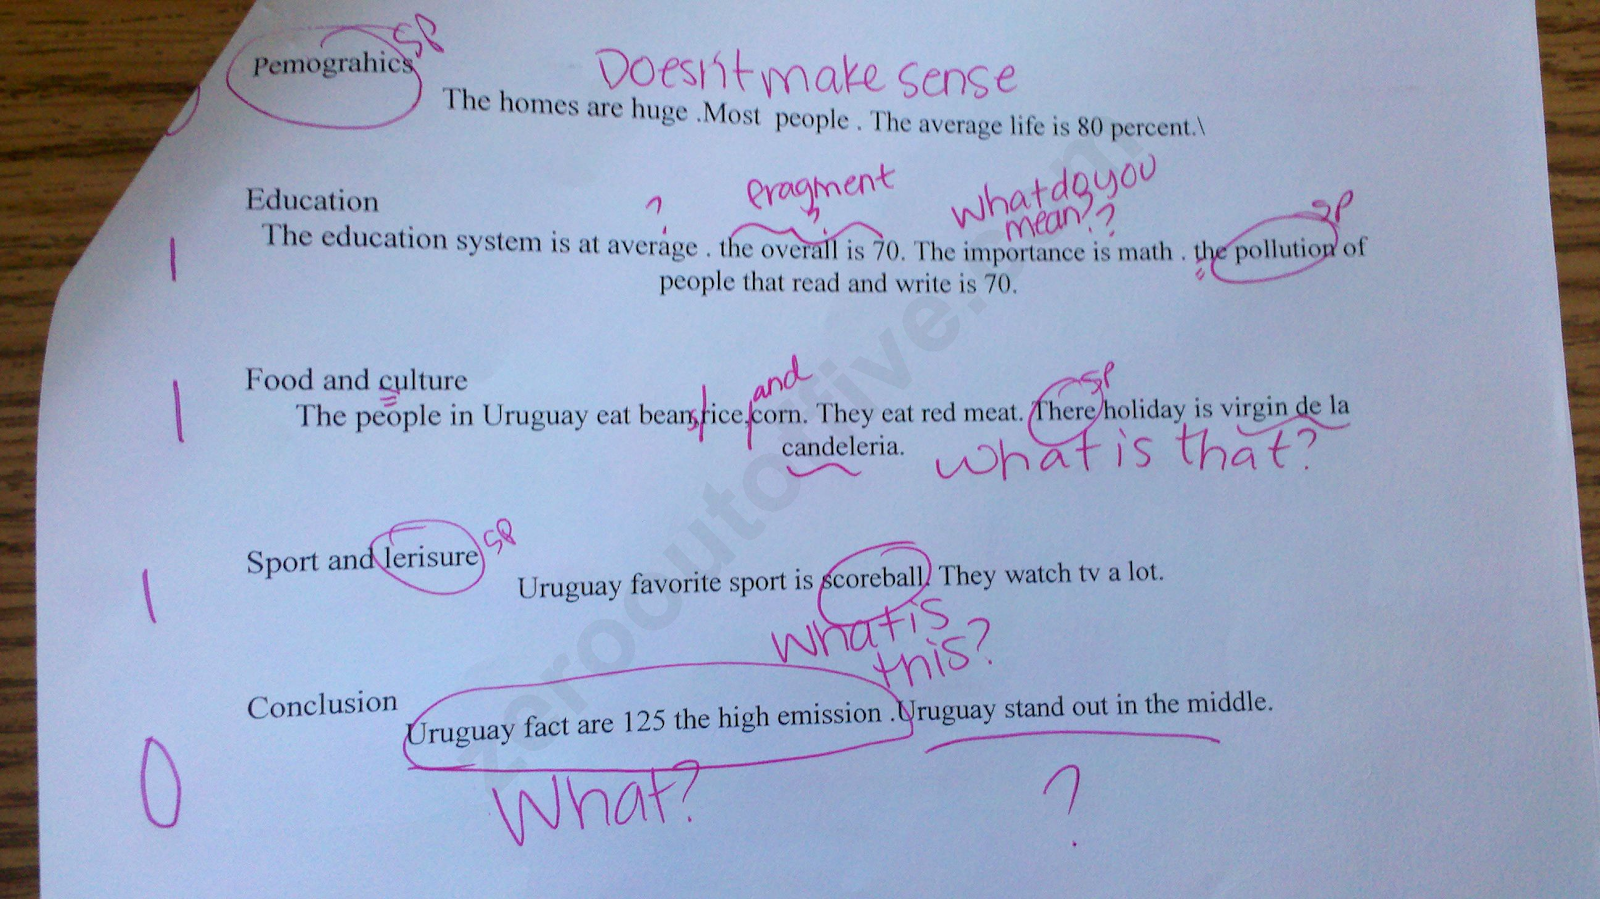 SP
Pemograhics
Doesn't make sense
The homes are huge .Most people . The average life is 80 percent.\
Education
? fragment what do you mean?? SP
1 The education system is at average . the overall is 70. The importance is math . the pollution of
people that read and write is 70.
Food and culture
and SP
1 The people in Uruguay eat beans,rice,corn. They eat red meat. There holiday is virgin de la
candeleria. What is that?
Sport and lerisure SP
1 Uruguay favorite sport is scoreball. They watch tv a lot.
What is
this?
Conclusion
0 Uruguay fact are 125 the high emission .Uruguay stand out in the middle.
What? ?
zerooutoffive.com